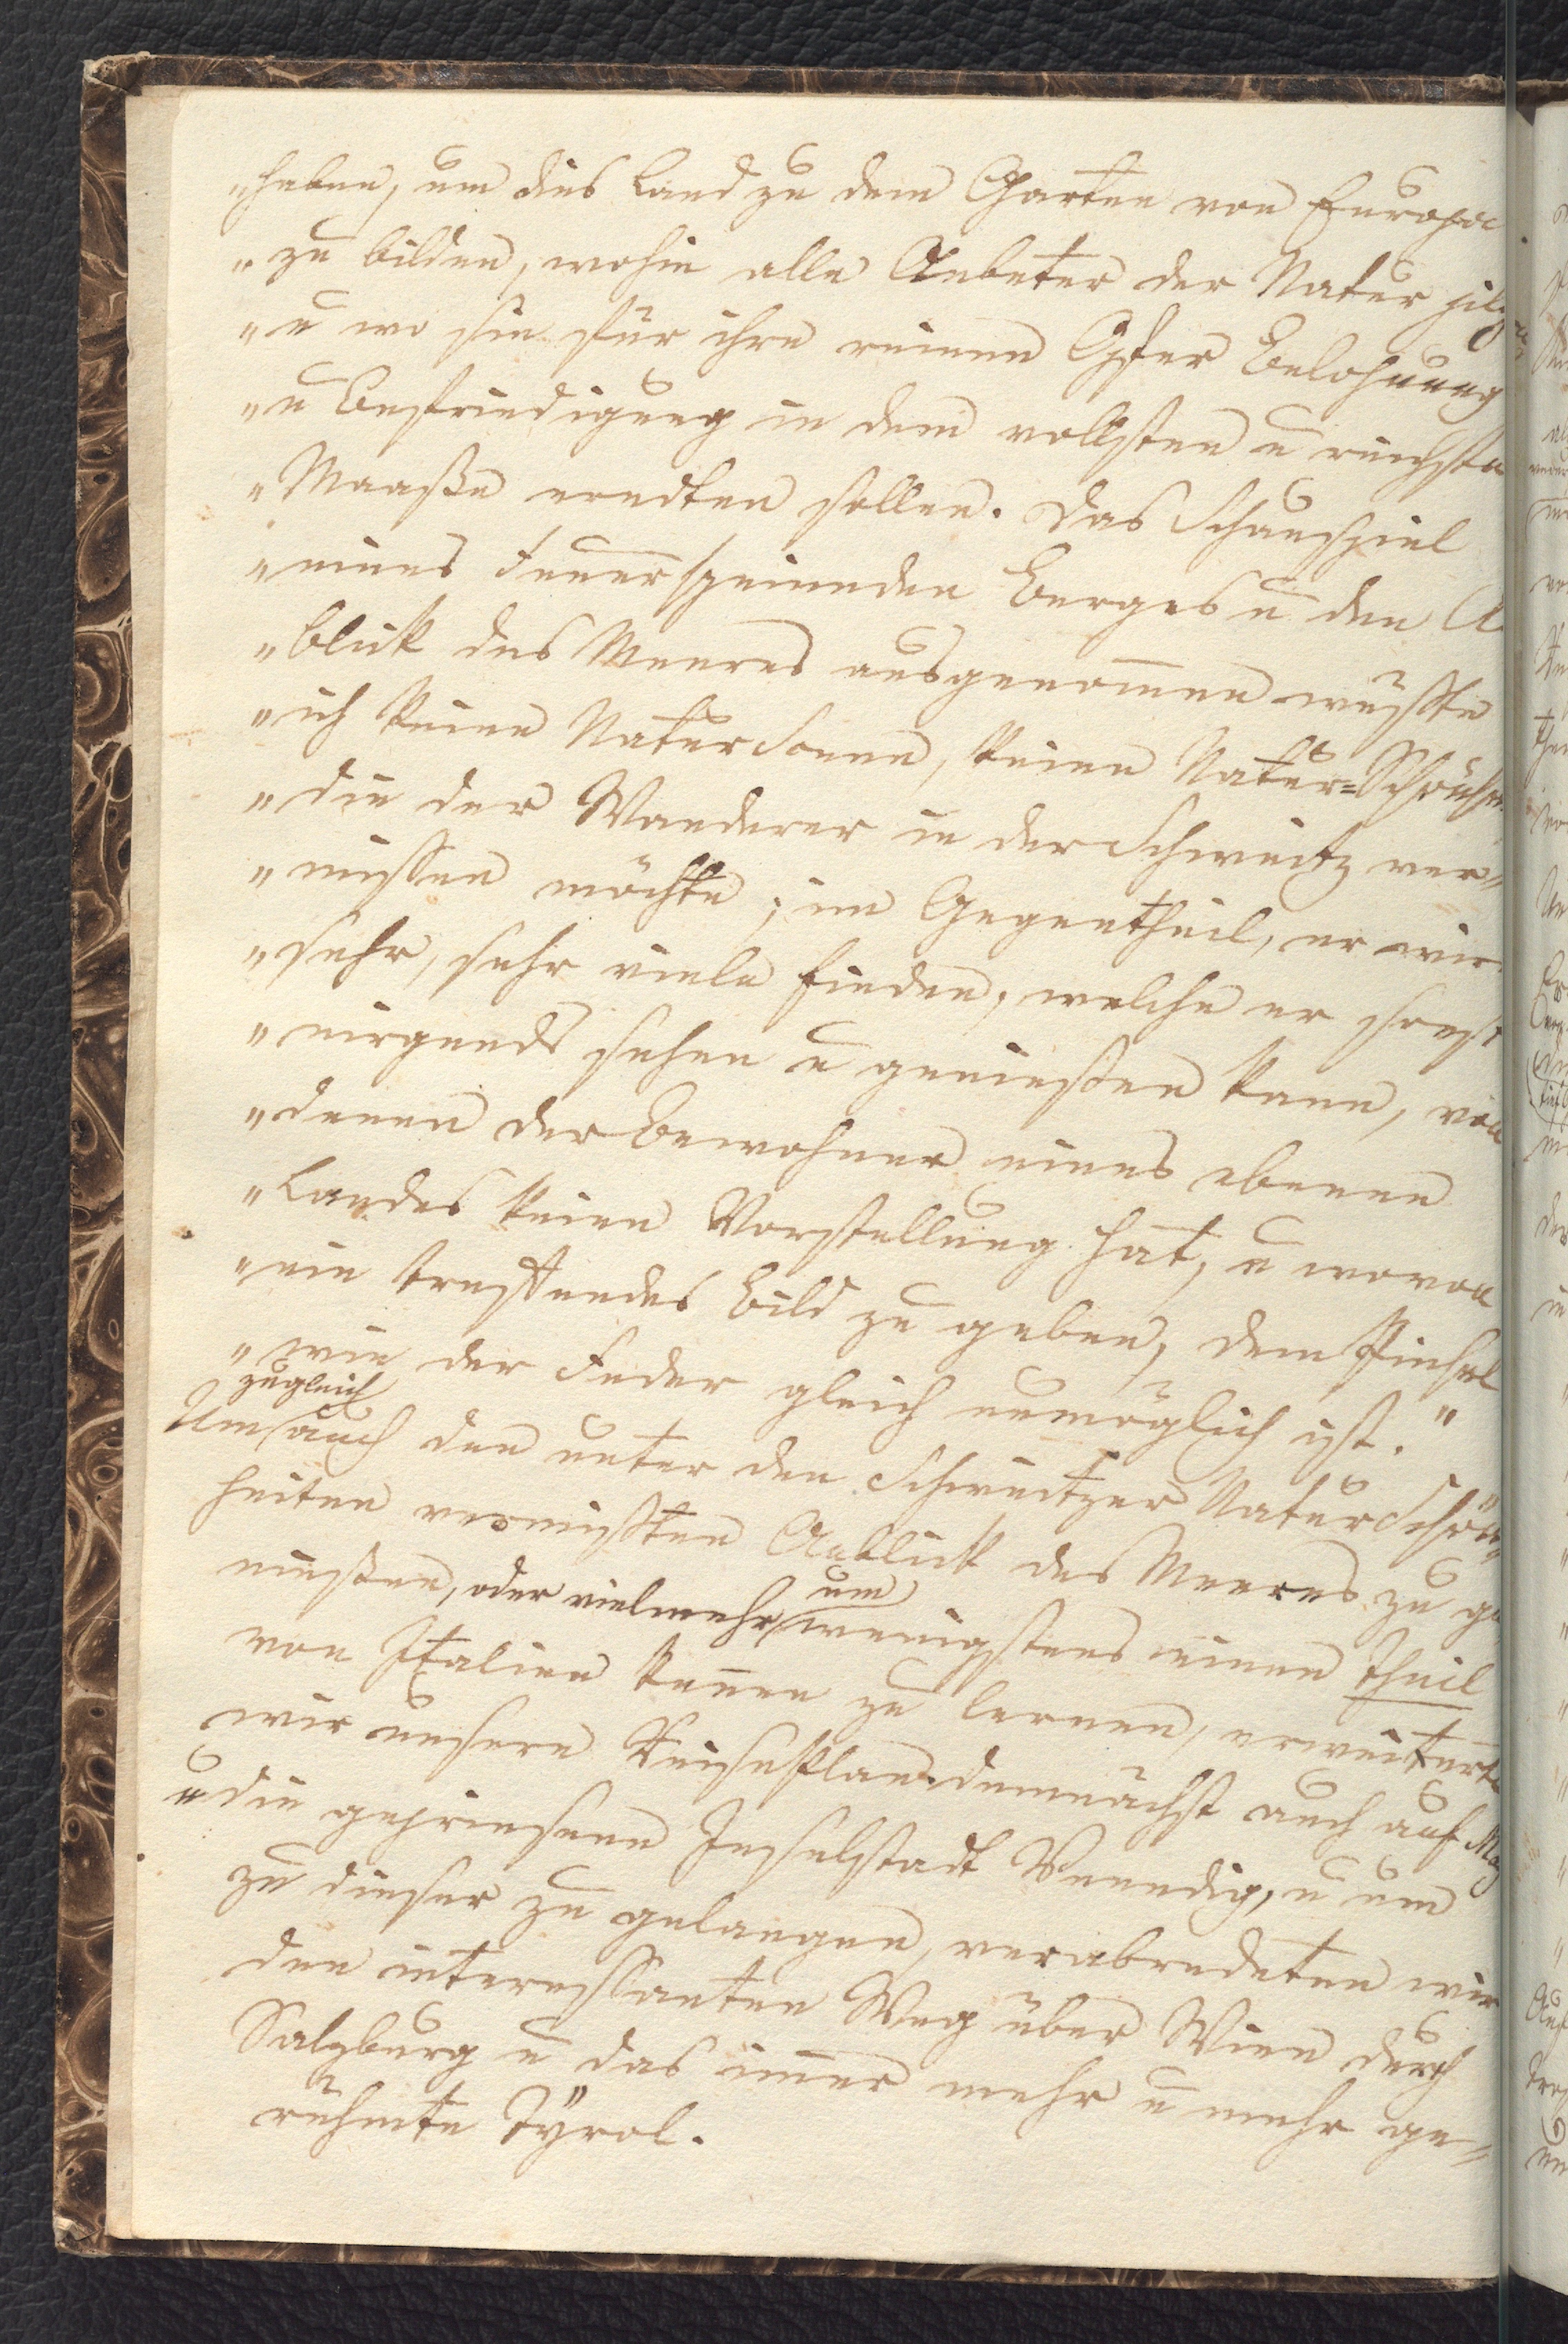 „haben, um dies Land zu dem Garten von Europa
„zu bilden, wohin alle Anbeter der Natur pilg
„u wo sie für ihre reinen Opfer Belohnung
„u Befriedigung in dem vollsten u reichsten
„Maaße erndten sollen. Das Schauspiel
„eines Feuerspeienden Berges u den A
„blick des Meeres ausgenom̅en wüßte
„ich keine Naturscene, keine Natur=Schönh
„die der Wanderer in der Schweitz ver„
„missen möchte; im Gegentheil, er wird
„sehr, sehr viele finden, welche er sonst
„nirgends sehen u genießen kann, von
„denen der Bewohner eines ebenen
„Landes keine Vorstellung hat, u wovon
„ein treffendes Bild zu geben, dem Pinsel
„wie der Feder gleich unmöglich ist."
zugleich
Um auch den unter den Schweitzer Naturschön„
heiten vermißten Anblick des Meeres zu ge„
um
nießen, oder vielmehr wenigstens einen Theil
von Italien ken̅en zu lernen, erweiterte
wir unsern Reiseplan demnächst auch auf May
u die gepriesene Inselstadt Venedig, u um
zu dieser zu gelangen, verabredeten wir
den interessanten Weg über Wien durch
Salzburg u das im̅er mehr u mehr ge„
rühmte Tÿrol.